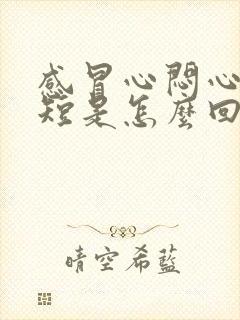 感冒心悶心
短是怎麼回
晴空希藍